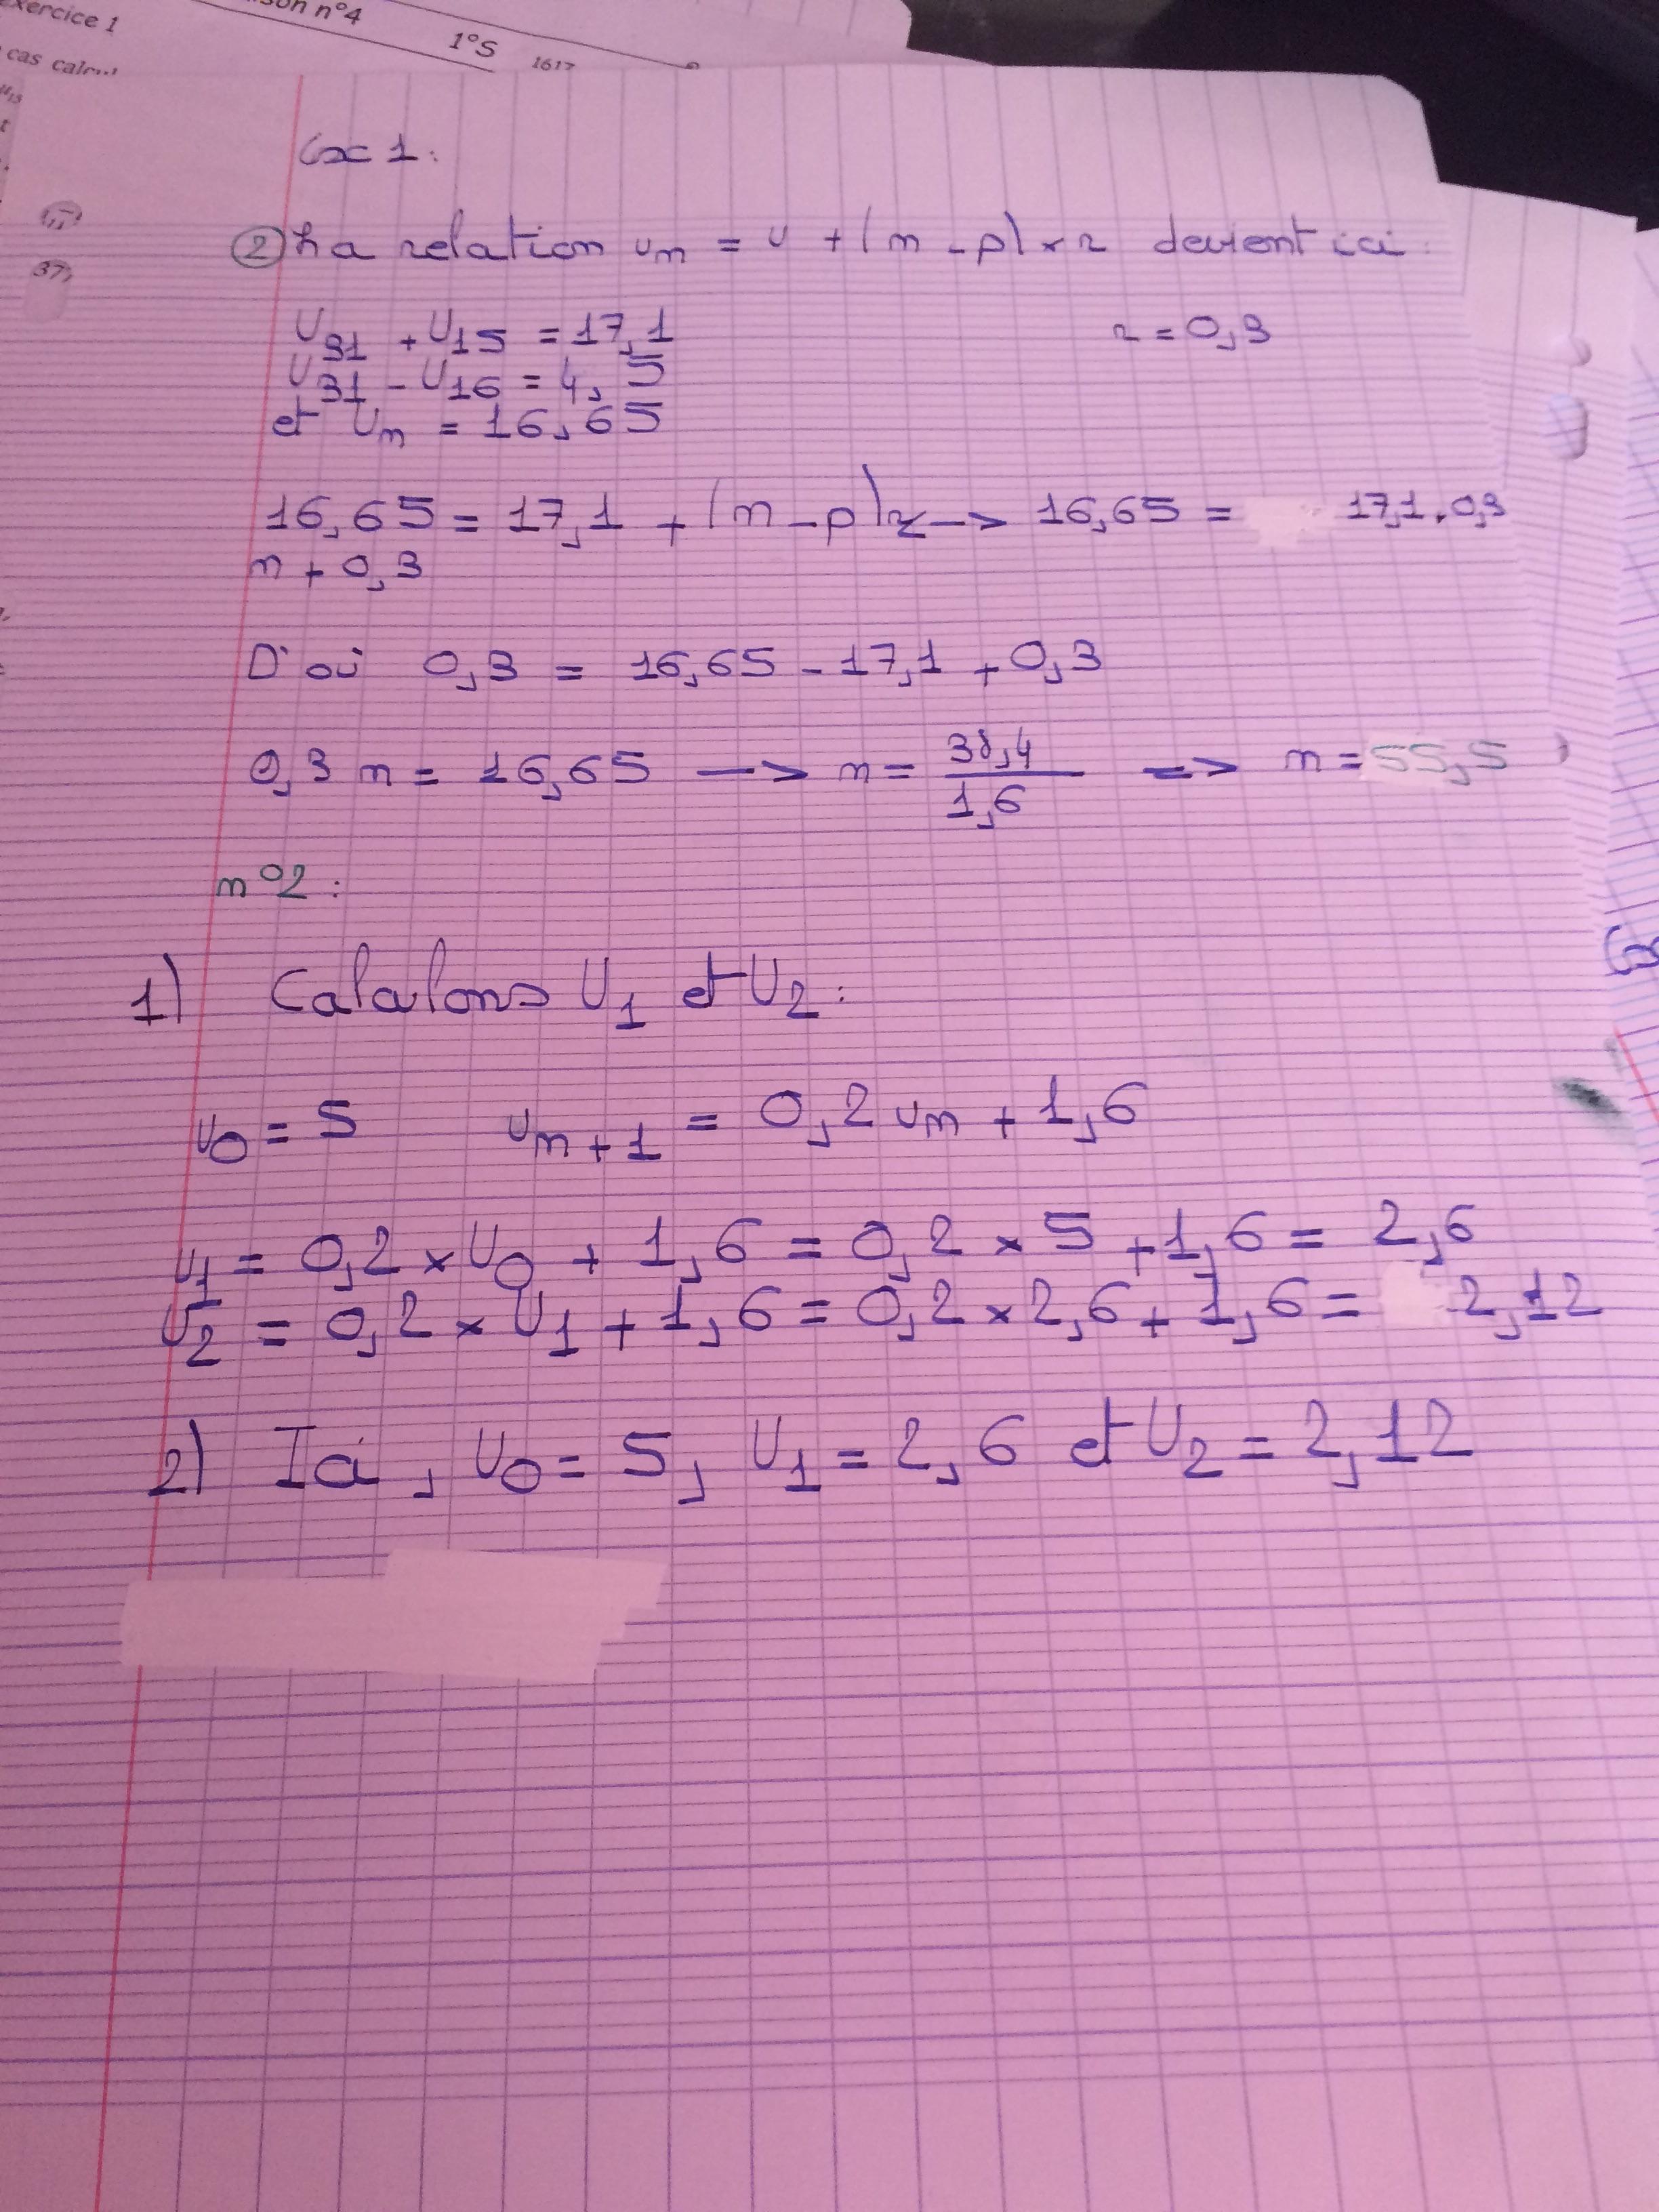 exercice 1
son n°4
1°S
1617
cas calcul
u15
37,
Ex 1:
② La relation un = u + (n - p) × r devient ici :
U31 + U15 = 17,1
r = 0,3
U31 - U16 = 4,5
et Un = 16,65
16,65 = 17,1 + (n - p) r —> 16,65 = 17,1 . 0,3
n + 0,3
D'où 0,3 = 16,65 - 17,1 + 0,3
0,3 n = 16,65 —> n = 38,4 / 1,6 => n = 55,5
n°2 :
1) Calculons U1 et U2 :
u0 = 5 un+1 = 0,2 un + 1,6
u1 = 0,2 × U0 + 1,6 = 0,2 × 5 + 1,6 = 2,6
U2 = 0,2 × U1 + 1,6 = 0,2 × 2,6 + 1,6 = 2,12
2) Ici, U0 = 5, U1 = 2,6 et U2 = 2,12